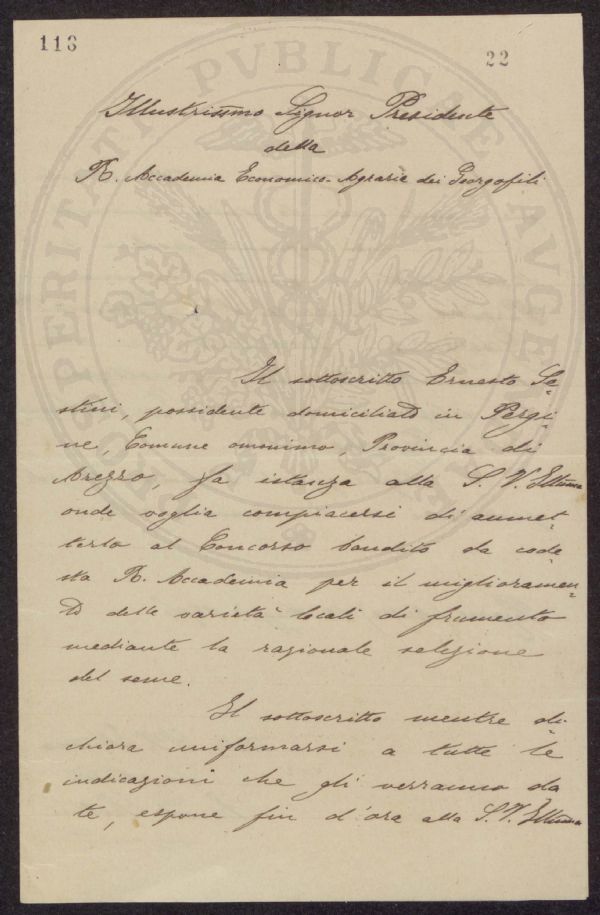 113
22
Illustrissimo Signor Presidente
della
R. Accademia Economico-Agraria dei Georgofili
Il sottoscritto Ernesto Se=
stini, possidente domiciliato in Pergi=
ne, Comune omonimo, Provincia di
Arezzo, fa istanza alla S. V. Ill͞ma
onde voglia compiacersi di ammet=
terlo al Concorso bandito da code=
sta R. Accademia per il miglioramen=
to delle varietà locali di frumento
mediante la razionale selezione
del seme.
Il sottoscritto mentre di-
chiara uniformarsi a tutte le
indicazioni che gli verranno da
te, espone fin d'ora alla S. V. Ill͞ma
PROSPERITATI PVBLICAE AVGENDAE